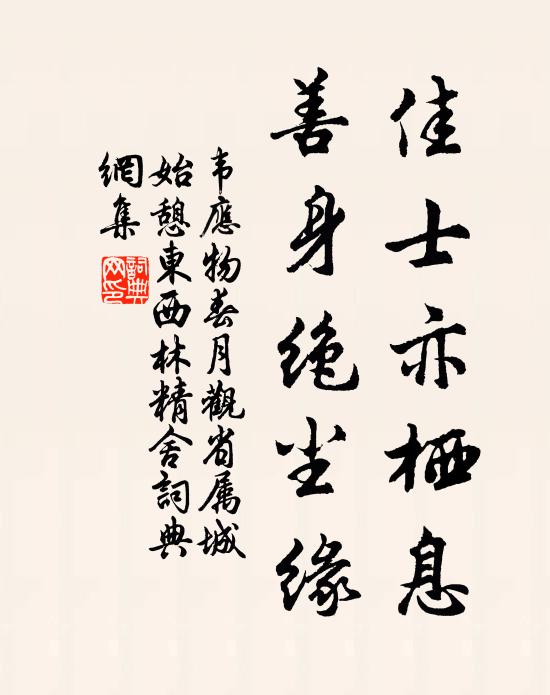 佳士亦栖息
善身绝尘缘
韦應物春月觀省属城
始憩東西林精舍詞典
網集
詞典
网印